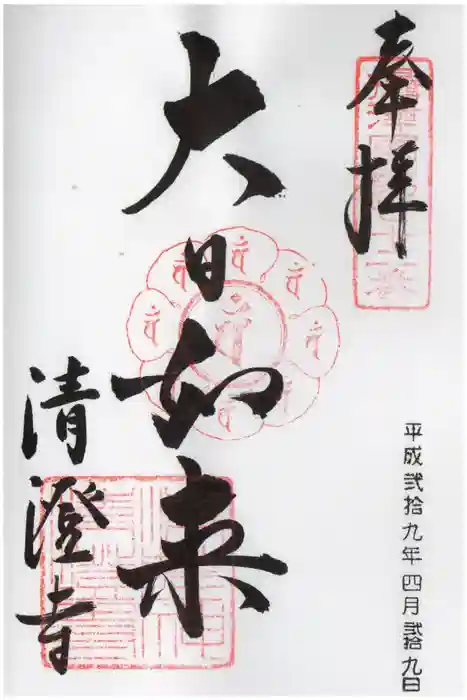 奉拝
大日如来
清澄寺
平成弐拾九年四月弐拾九日